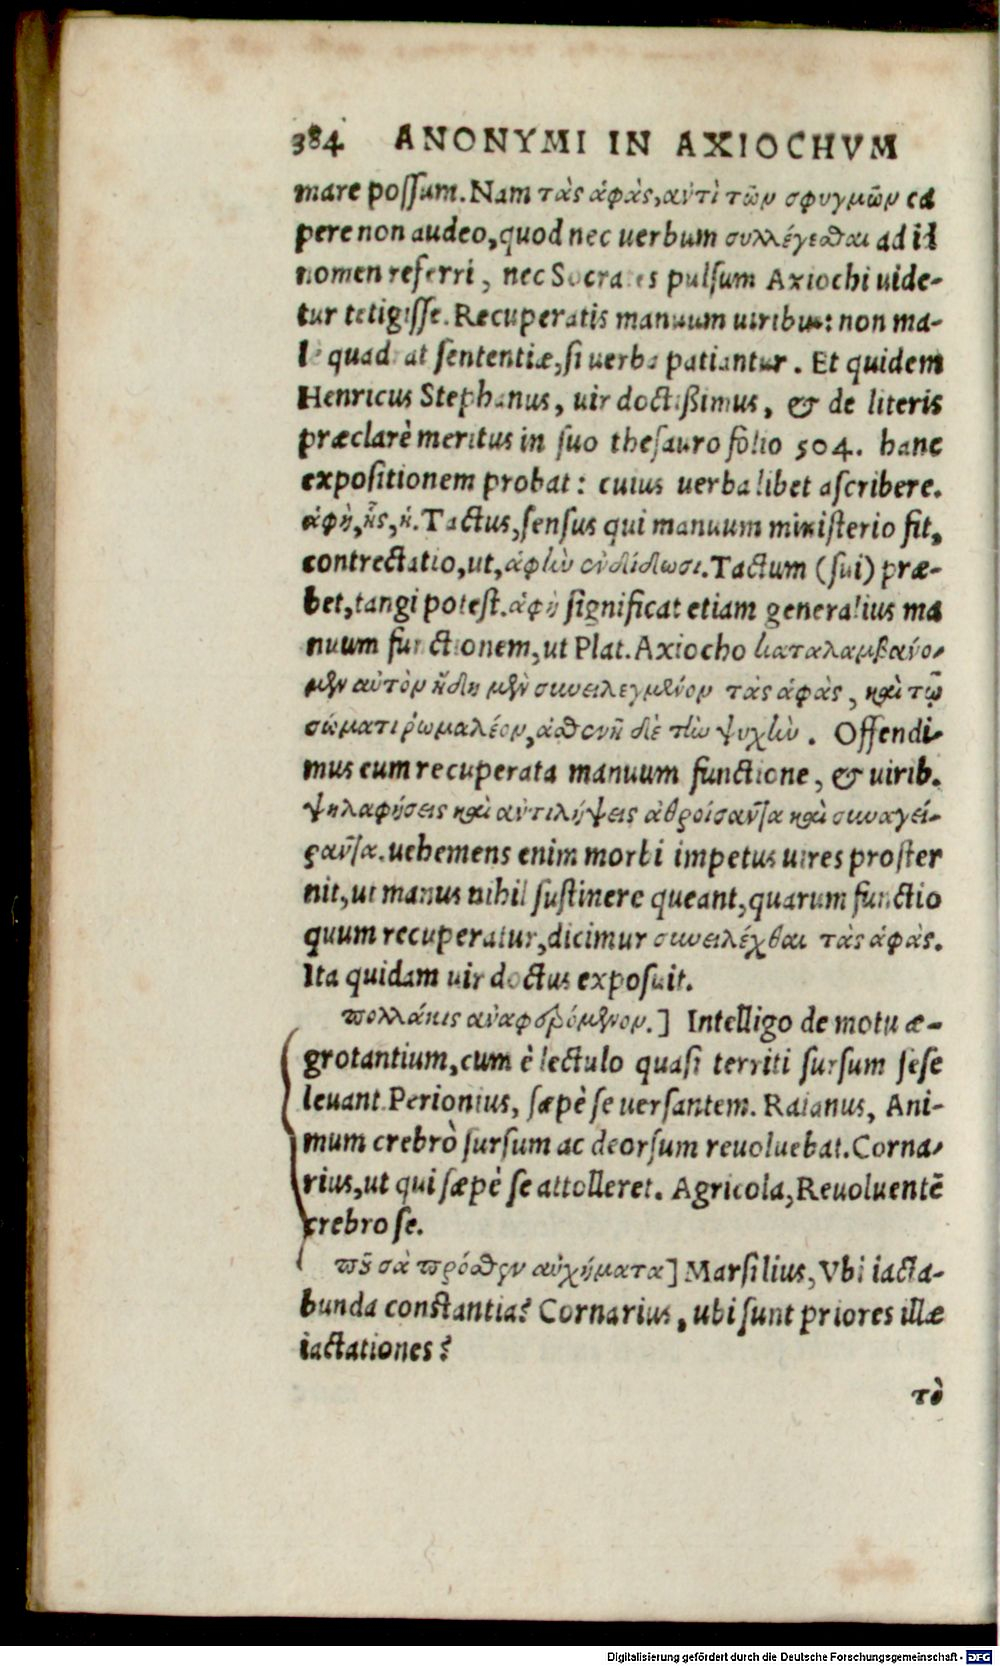 384 ANONYMI IN AXIOCHVM
mare possum. Nam τὰς ἁφὰς, ἀντὶ τῶν σφυγμῶν ca
pere non audeo, quod nec uerbum συλλέγεσθαι ad id
nomen referri, nec Socrates pulsum Axiochi uide-
tur tetigisse. Recuperatis manuum uiribus: non ma-
le quadrat sententiæ, si uerba patiantur. Et quidem
Henricus Stephanus, uir doctißimus, & de literis
præclarè meritus in suo thesauro folio 504. hanc
expositionem probat: cuius uerba libet ascribere.
ἁφὴ, ῆς, ἡ. Tactus, sensus qui manuum ministerio fit,
contrectatio, ut, ἁφὴν ἐνδίδωσι. Tactum (sui) præ-
bet, tangi potest. ἁφὴ significat etiam generalius ma
nuum functionem, ut Plat. Axiocho καταλαμβάνο-
μεν αὐτὸν ἤδη μὲν συνειλεγμένον τὰς ἁφὰς, καὶ τῷ
σώματι ῥωμαλέον, ἀσθενῆ δὲ τὴν ψυχὴν. Offendi-
mus eum recuperata manuum functione, & uirib.
ψηλαφήσεις καὶ ἀντιλήψεις ἀθροίσαντα καὶ συναγεί-
ραντα. uehemens enim morbi impetus uires proster
nit, ut manus nihil sustinere queant, quarum functio
quum recuperatur, dicimur συνειλέχθαι τὰς ἁφὰς.
Ita quidam uir doctus exposuit.
πολλάκις ἀναφερόμενον.] Intelligo de motu æ-
grotantium, cum è lectulo quasi territi sursum sese
leuant. Perionius, sæpè se uersantem. Raianus, Ani-
mum crebrò sursum ac deorsum reuoluebat. Corna-
rius, ut qui sæpè se attolleret. Agricola, Reuoluentē
crebro se.
ποῦ σὰ πρόσθεν αὐχήματα] Marsilius, Vbi iacta-
bunda constantia? Cornarius, ubi sunt priores illæ
iactationes?
τὸ
Digitalisierung gefördert durch die Deutsche Forschungsgemeinschaft - DFG